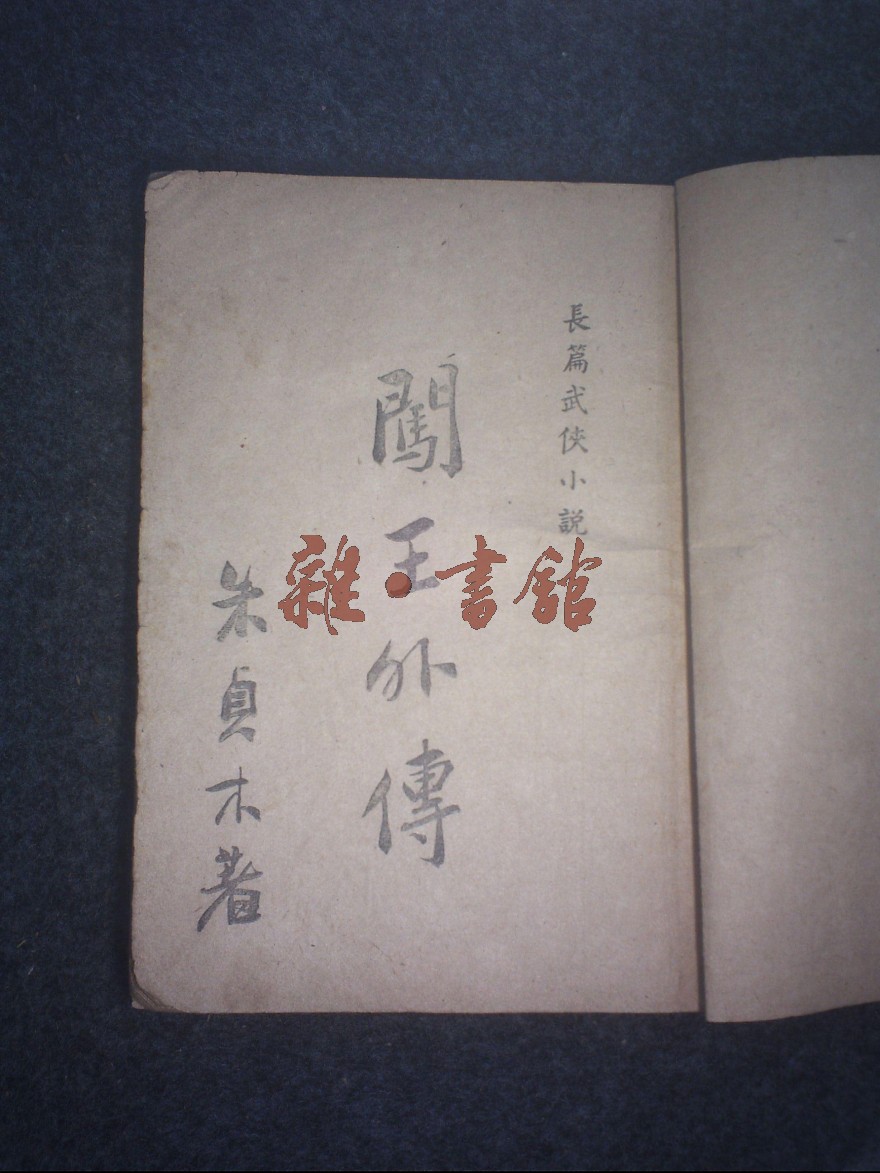 長篇武俠小説
闖王外傳
朱貞木著
雜·書館